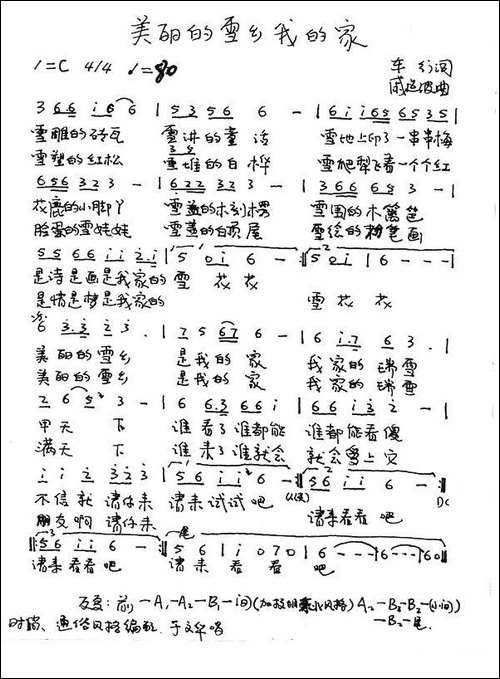 美丽的雪乡我的家
1=C 4/4 ♩=80
车行词
戚建波曲
3 6 6 i 6 6 | 5 3 5 6 6 - | 6 i i 6 5 6 5 3 5 |
雪雕的砖瓦 雪讲的童话 雪地上印了一串串梅
雪塑的红松 雪堆的白桦 雪爬犁飞着一个个红
6 5 6 3 2 3 - | 6 2 2 3 2 3 - | 3 6 6 6 5 3 - |
花鹿的小脚丫 雪盖的木刻楞 雪围的木篱笆
脸蛋的雪娃娃 雪盖的白 尾 雪绘的粉笔画
5 5 6 6 i i 2 i | 5 0 i 6 - :| 5 0 i | 6 - - - |
是诗是画是我家的 雪 花 花
是情是梦是我家的 雪 花 花
6 3. 3 2 3 . | 7 5 6 7 6 - | 6 i. 7 6 3 . |
美丽的雪乡 是我的家 我家的瑞雪
美丽的雪乡 是我的家 我家的瑞雪
2 6 5 3 - | 6 6. 3 6 6 i | 6 6 i 3 2 - |
甲天下 谁看了谁都能 谁都能看傻
满天下 谁来了谁就会 就会爱上它
i i 2 3 2 3 | 5 6 i i 6 - :| 5 6 i i 6 - :|
不信就请你来 请来试试吧
朋友啊请你来 请来看看吧
DC
5 6 i i 6 - :| 尾 5 6 | i 0 7 0 | 6 - - - | 6 - - - | 6 0 ||
请来看看吧 请来看看吧
反复:前-A₁-A₂-B₁-间(加 风格)A₂-B₂-B₂-(小间)
-B₂-尾.
时尚、通俗风格编配.于文华唱